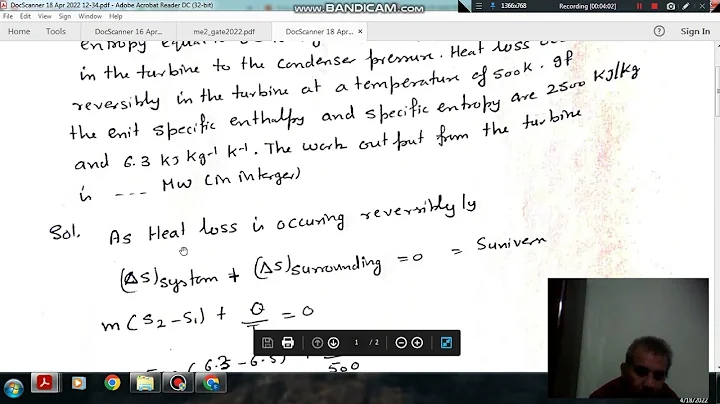 DocScanner 18 Apr 2022 12-34.pdf - Adobe Acrobat Reader DC (32-bit)
WWW.BANDICAM.COM
1366x768
Recording [00:04:02]
File Edit View Sign Window Help
Home Tools DocScanner 16 Apr... me2_gate2022.pdf DocScanner 18 Apr... × Sign In
entropy equal
in the turbine to the condenser pressure. Heat loss
reversibly in the turbine at a temperature of 500K. If
the enit specific enthalpy and specific entropy are 2500 KJ/Kg
and 6.3 KJ Kg-1 K-1. The work out put from the turbine
is ---- MW (in interger)
Sol. As Heat loss is occuring reversibly ly
(ΔS)system + (ΔS)surrounding = 0 = Sunivern
m(S2-S1) + Q/T = 0
1 / 2
(6.3-6.5) +
500
4/18/2022